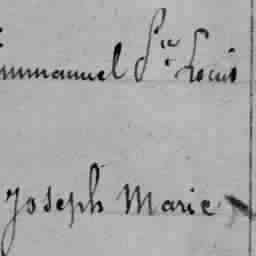 mmanuel Pre Louis
Joseph Marie